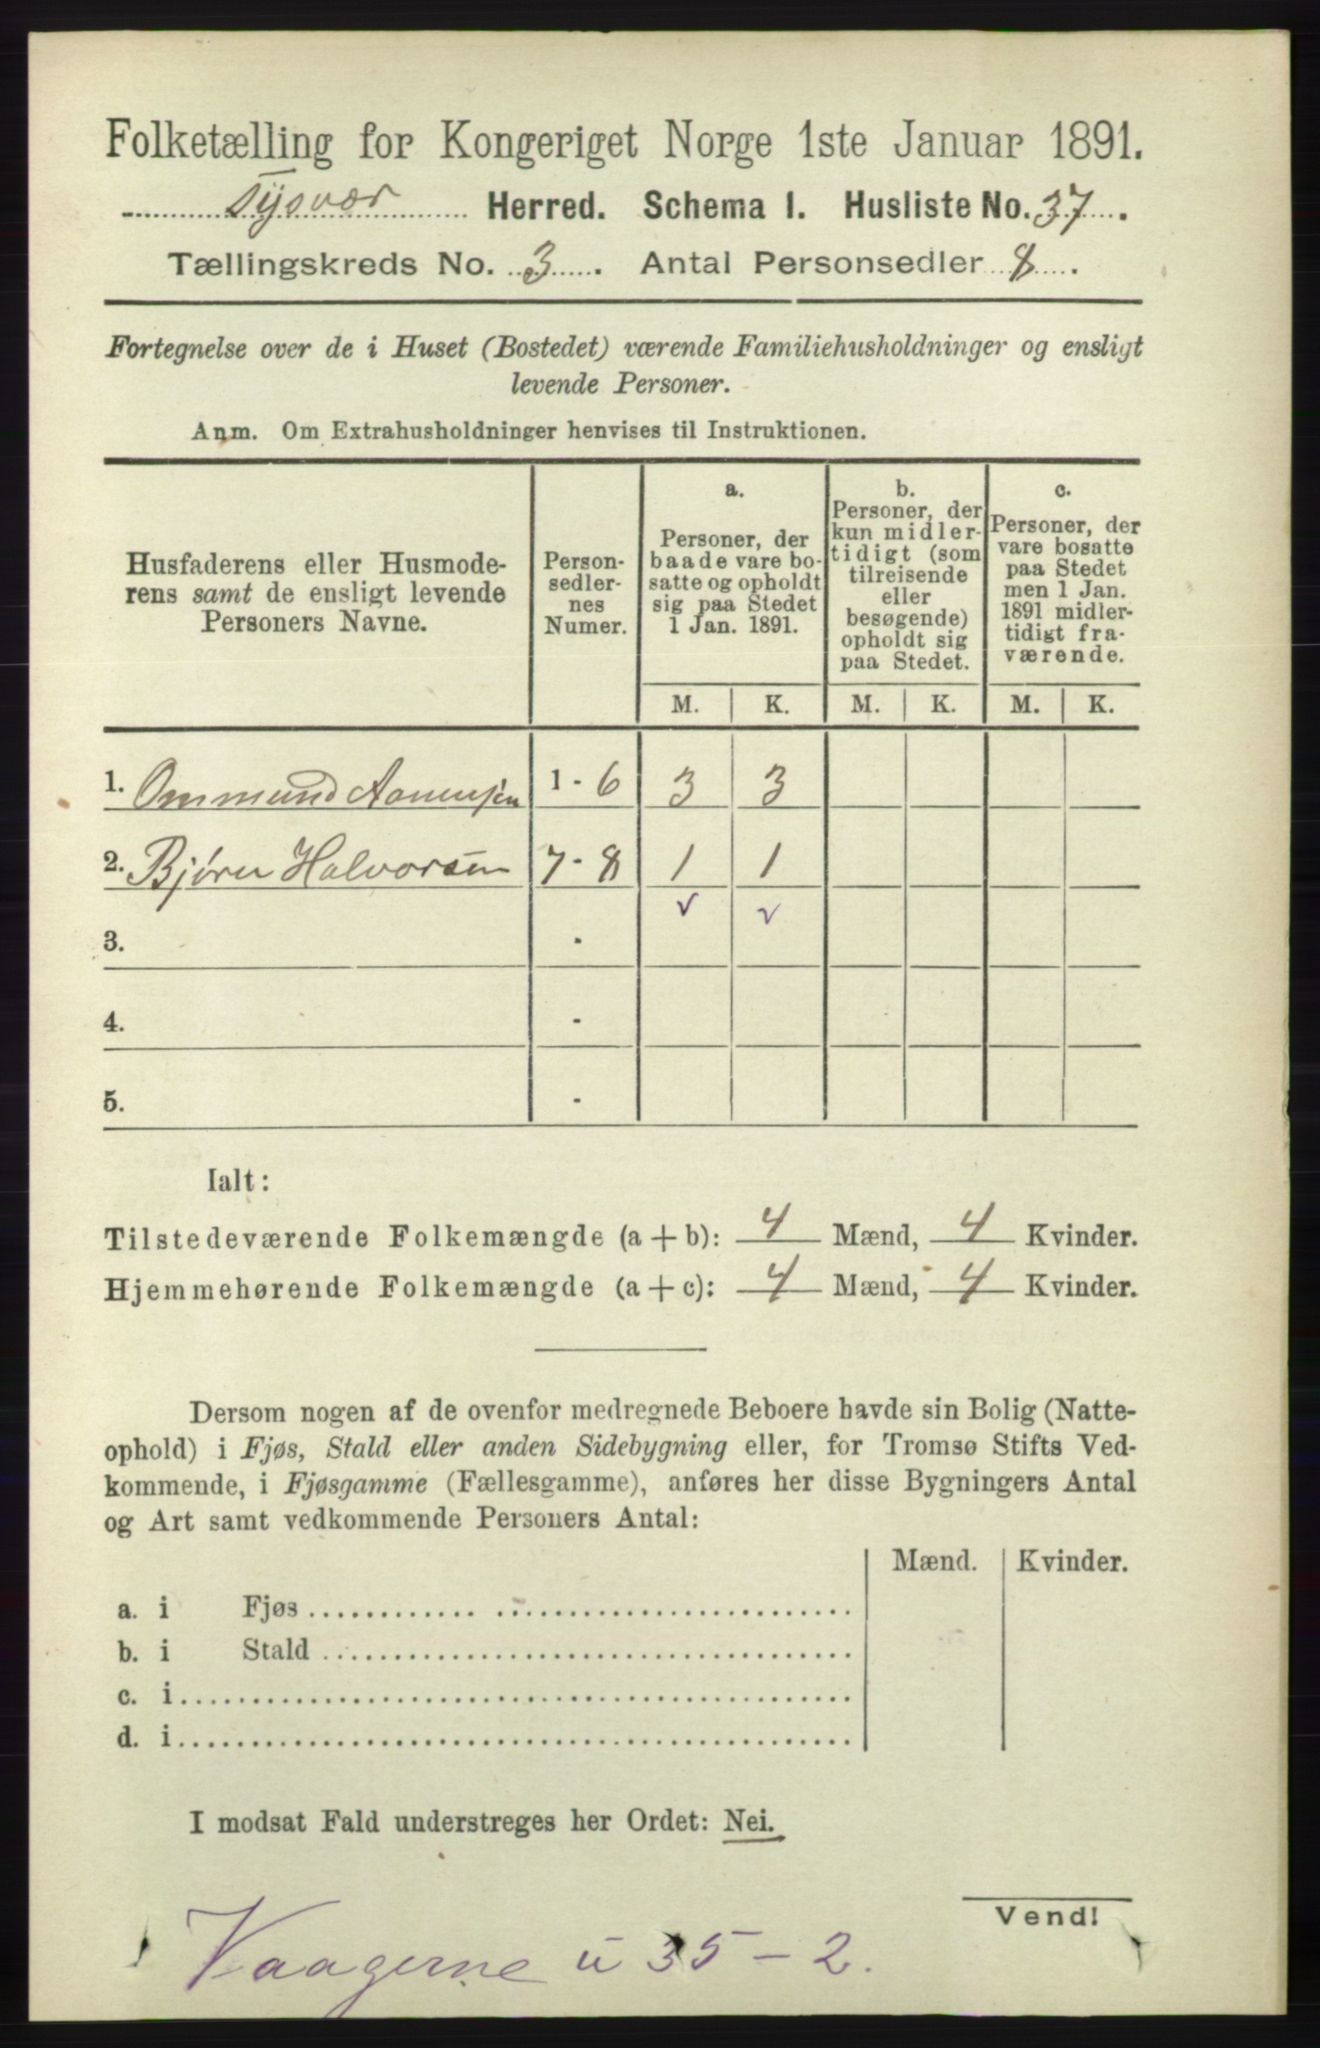 Folketælling for Kongeriget Norge 1ste Januar 1891.
Tysvær Herred. Schema I. Husliste No. 37.
Tællingskreds No. 3. Antal Personsedler 8.
Fortegnelse over de i Huset (Bostedet) værende Familiehusholdninger og ensligt
levende Personer.
Anm. Om Extrahusholdninger henvises til Instruktionen.
Husfaderens eller Husmode-
rens samt de ensligt levende
Personers Navne.
Person-
sedler-
nes
Numer.
a.
Personer, der
baade vare bo-
satte og opholdt
sig paa Stedet
1 Jan. 1891.
b.
Personer, der
kun midler-
tidigt (som
tilreisende
eller
besøgende)
opholdt sig
paa Stedet.
c.
Personer, der
vare bosatte
paa Stedet
men 1 Jan.
1891 midler-
tidigt fra-
værende.
M. K. M. K. M. K.
1. Ommund 1 - 6 3 3
2. Bjørn Halvorsen 7 - 8 1 1
3. -
4. -
5. -
Ialt:
Tilstedeværende Folkemængde (a + b): 4 Mænd, 4 Kvinder.
Hjemmehørende Folkemængde (a + c): 4 Mænd, 4 Kvinder.
Dersom nogen af de ovenfor medregnede Beboere havde sin Bolig (Natte-
ophold) i Fjøs, Stald eller anden Sidebygning eller, for Tromsø Stifts Ved-
kommende, i Fjøsgamme (Fællesgamme), anføres her disse Bygningers Antal
og Art samt vedkommende Personers Antal:
Mænd. Kvinder.
a. i Fjøs
b. i Stald
c. i
d. i
I modsat Fald understreges her Ordet: Nei.
Vend!
Vaagerne u 35 - 2.